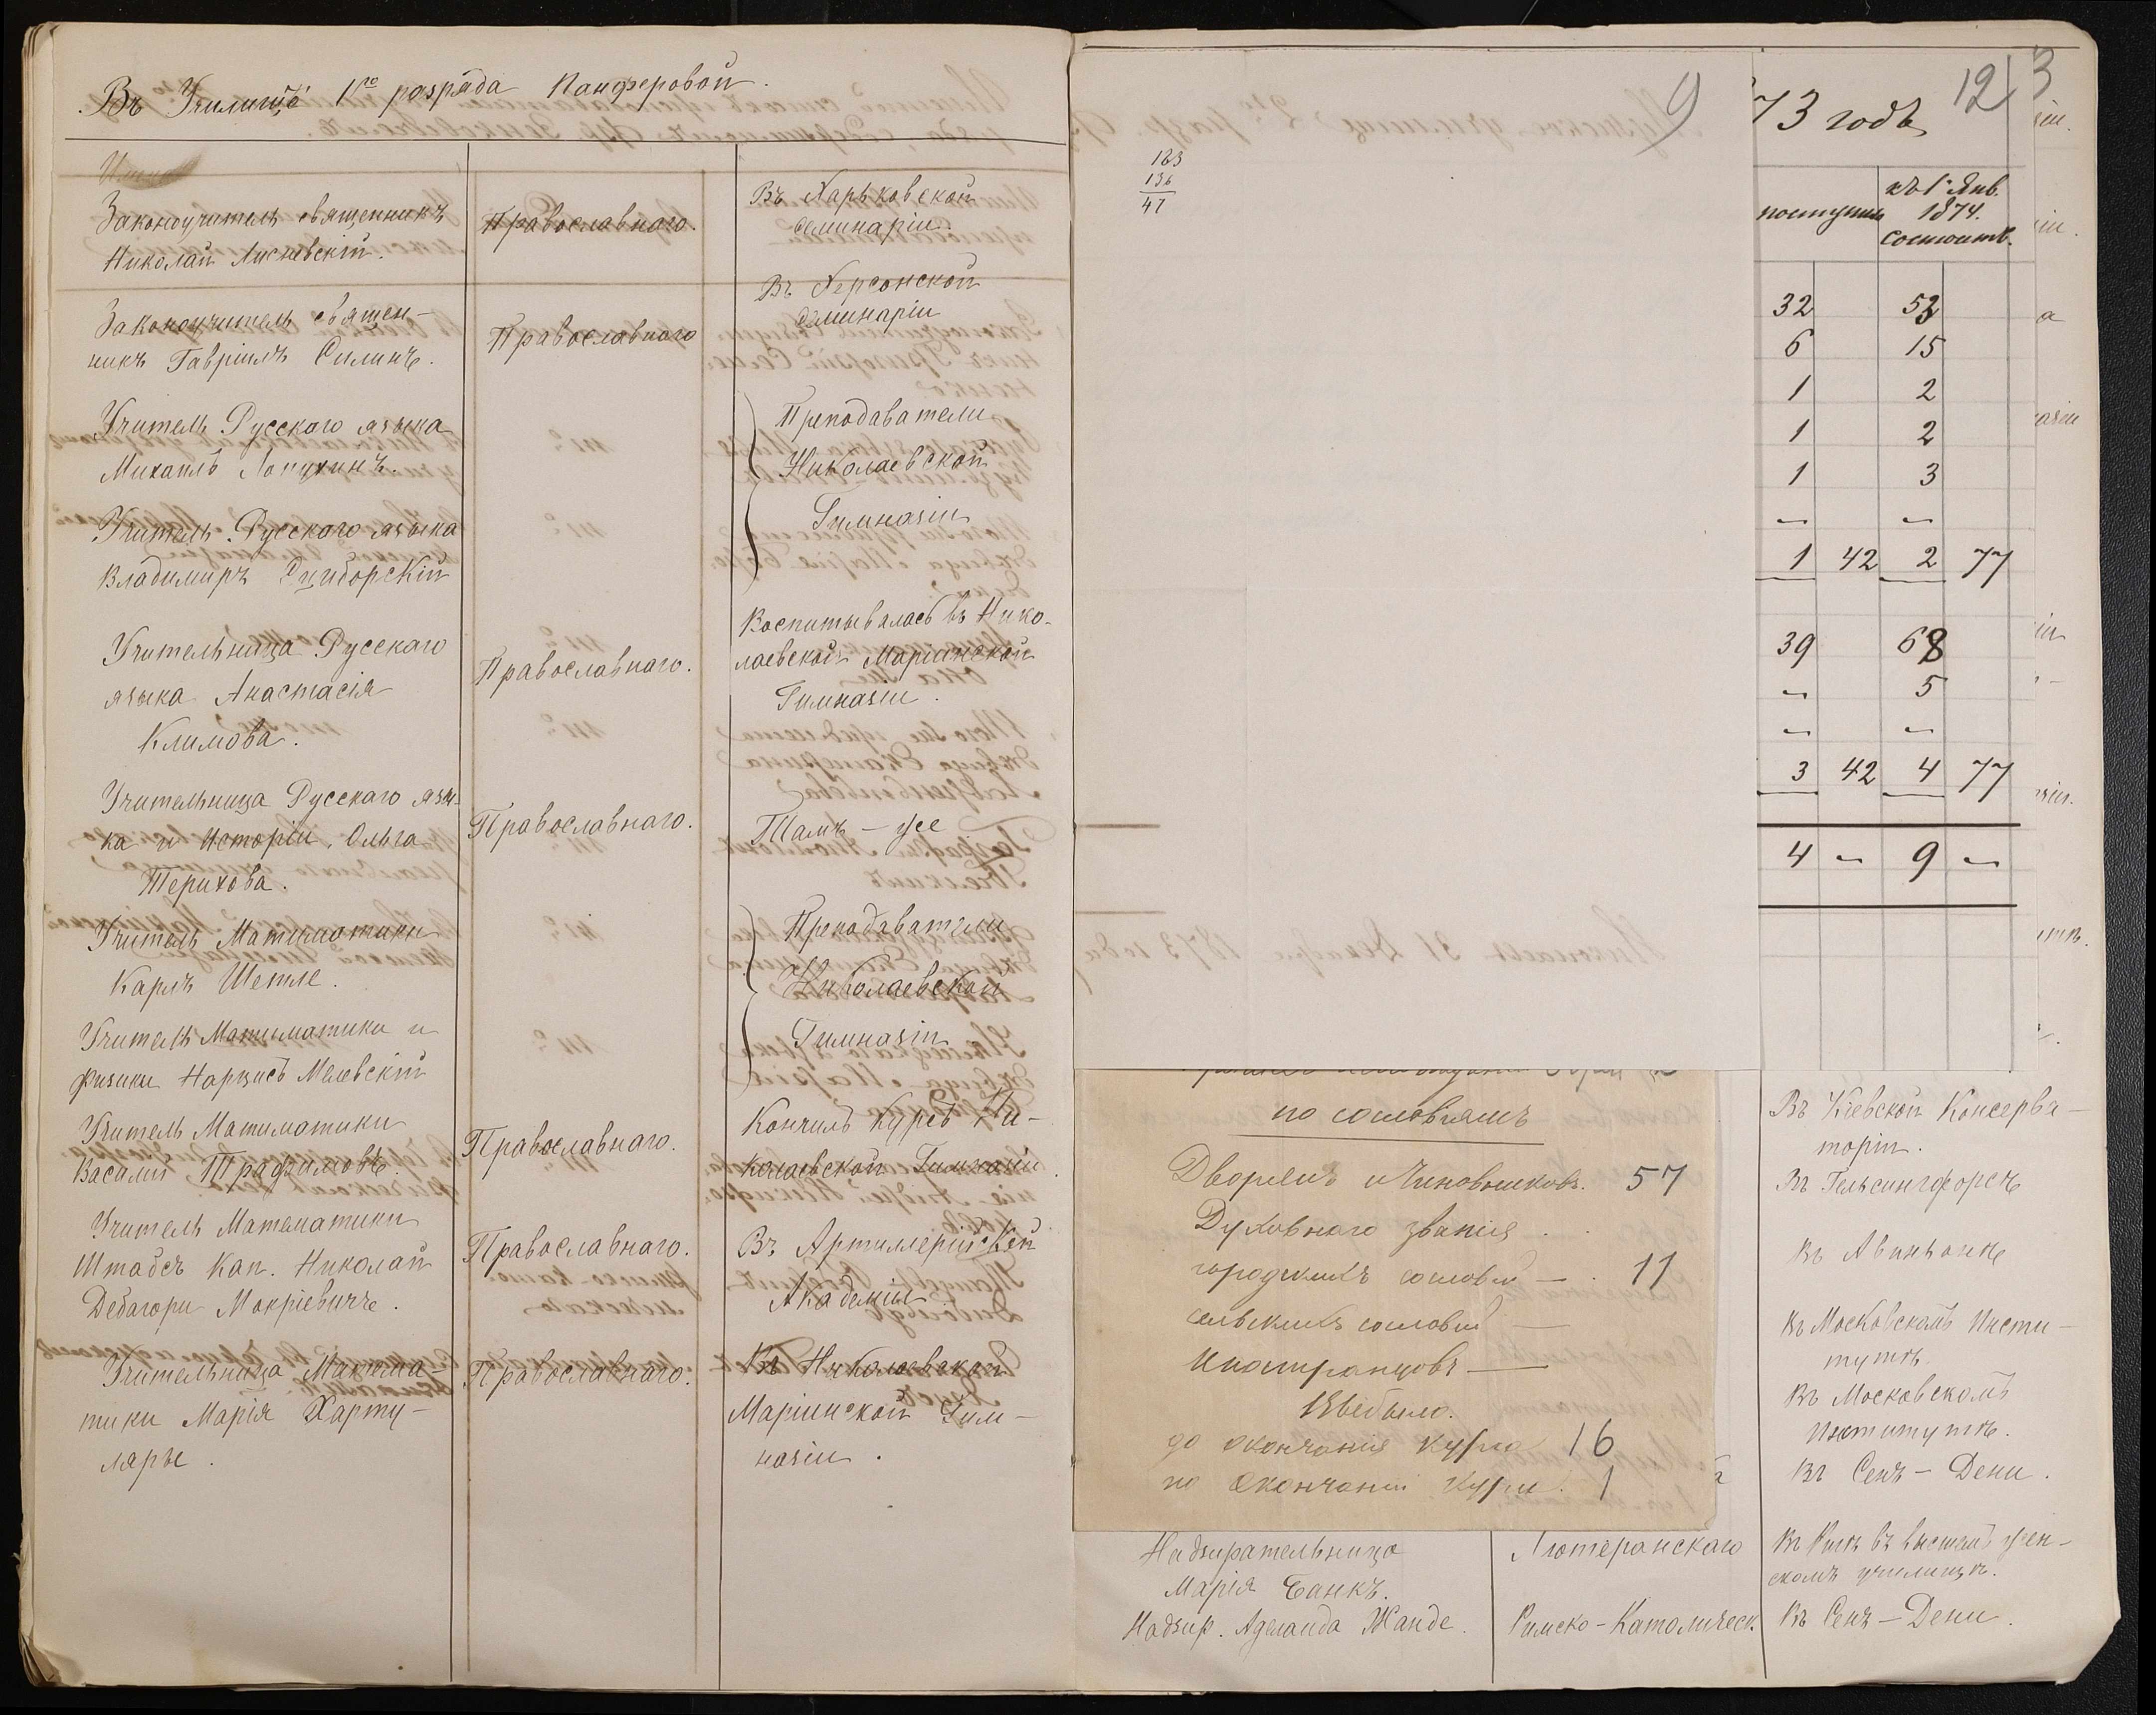 Въ Училищѣ 1го разряда Панферовой.
Законоучитель священникъ
Николай Лисневскій.
Православнаго.
Въ Харьковской
семинаріи.
Законоучитель священ-
никъ Гавріилъ Силинъ.
Православнаго
Въ Херсонской
семинаріи
Учитель Русскаго языка
Михаилъ Лопухинъ.
Учитель Русскаго языка
Владимиръ
Преподаватели
Николаевской
Гимназіи
Учительница Русскаго
языка Анастасія
Климова.
Православнаго.
Воспитывалась въ Нико-
лаевской Маріинской
Гимназіи.
Учительница Русскаго язы-
ка и Исторіи, Ольга
Терихова.
Православнаго.
Тамъ-же
Учитель Математики
Карлъ Шетле.
Учитель Математики и
физики Нарцисъ
Преподаватели
Николаевской
Гимназіи
Учитель Математики
Василій Трафимовъ.
Православнаго.
Кончилъ курсъ Ни-
колаевской Гимназіи.
Учитель Математики
Штабсъ Кап. Николай
Дебагори Мокріевичъ.
Православнаго.
Въ Артиллерійской
Академіи
Учительница Матема-
тики Марія Харту-
лары.
Православнаго.
Въ Николаевской
Маріинской Гим-
назіи.
9
183
136
47
73 годъ
12
3
поступило
къ 1 Янв.
1874.
состоитъ.
32 53
6 15
1 2
1 2
1 3
— —
1 42 2 77
39 68
— 5
— —
3 42 4 77
4 — 9 —
по сословіямъ
Дворянъ и Чиновниковъ. 57
Духовнаго званія . .
городскихъ сословій — . 11
сельскихъ сословій —
Иностранцовъ —
Выбыло.
до окончанія курса 16
по окончаніи курса. 1
Въ Кіевской Консерва-
торіи.
Въ Гельсингфорсѣ
Въ Авиньонѣ
Въ Московскомъ Инсти-
тутѣ.
Въ Московскомъ
Институтѣ.
Въ Сенъ-Дени.
Надзирательница
Марія Банкъ.
Лютеранскаго
Въ Ригѣ въ высшемъ жен-
скомъ училищѣ.
Надзир. Аделаида Жанде.
Римско-Католическ.
Въ Сенъ-Дени.